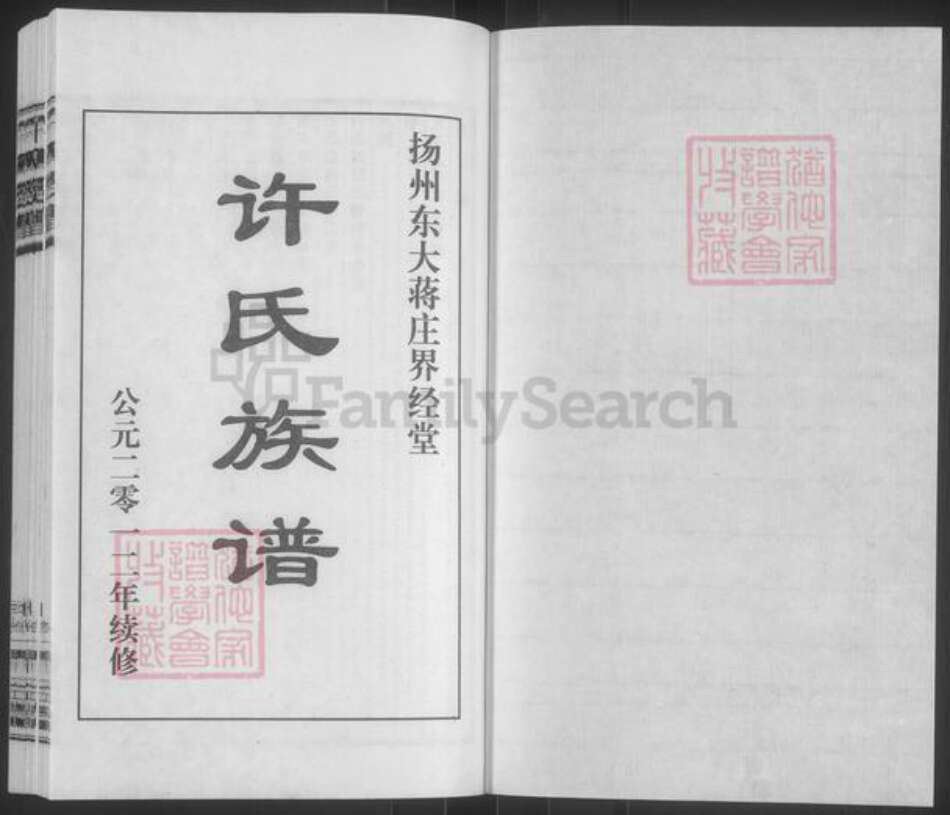 扬州东大蒋庄界经堂
许氏族谱
公元二零一二年续修
猶他家
譜學會
收藏
猶他家
譜學會
收藏
FamilySearch